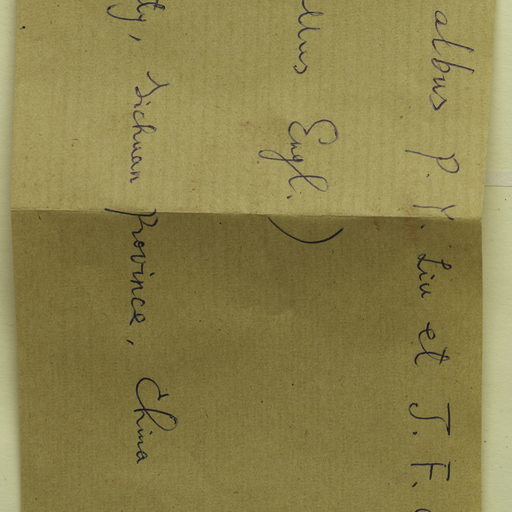 albus P. Y. Liu et J. F.
Engl.)
Sichuan Province, China